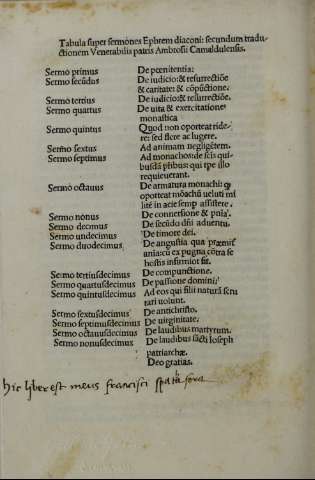 Tabula super sermones Ephrem diaconi: secundum tradu-
ctionem Venerabilis patris Ambrosii Camaldulensis.
Sermo primus De pœnitentia:
Sermo secũdus De iudicio: & resurrectiõe
& caritate: & cõpũctione.
Sermo tertius De iudicio: & resurrectiõe.
Sermo quartus De uita & exercitatione
monastica
Sermo quintus Quod non oporteat ride-
re: sed flere ac lugere.
Sermo sextus Ad animam negligẽtem.
Sermo septimus Ad monachos: de
requieuerant.
Sermo octauus De armatura monachi:
oporteat mõachũ ueluti mi
lite in acie semp assistere.
Sermo nonus De conuersione &
Sermo decimus De secũdo dñi aduentu.
Sermo undecimus De timore dei.
Sermo duodecimus De angustia qua
ania: cũ ex pugna cõtra se
hostis insurrexit
Sermo tertiusdecimus De compunctione.
Sermo quartusdecimus De passione domini:
Sermo quintusdecimus Ad eos qui filii naturã scru
tari uolunt.
Sermo sextusdecimus De antichristo.
Sermo septimusdecimus De uirginitate.
Sermo octauusdecimus De laudibus martyrum.
Sermo nonusdecimus De laudibus sãcti Ioseph
patriarchæ.
Deo gratias.
hic liber est meus francisci